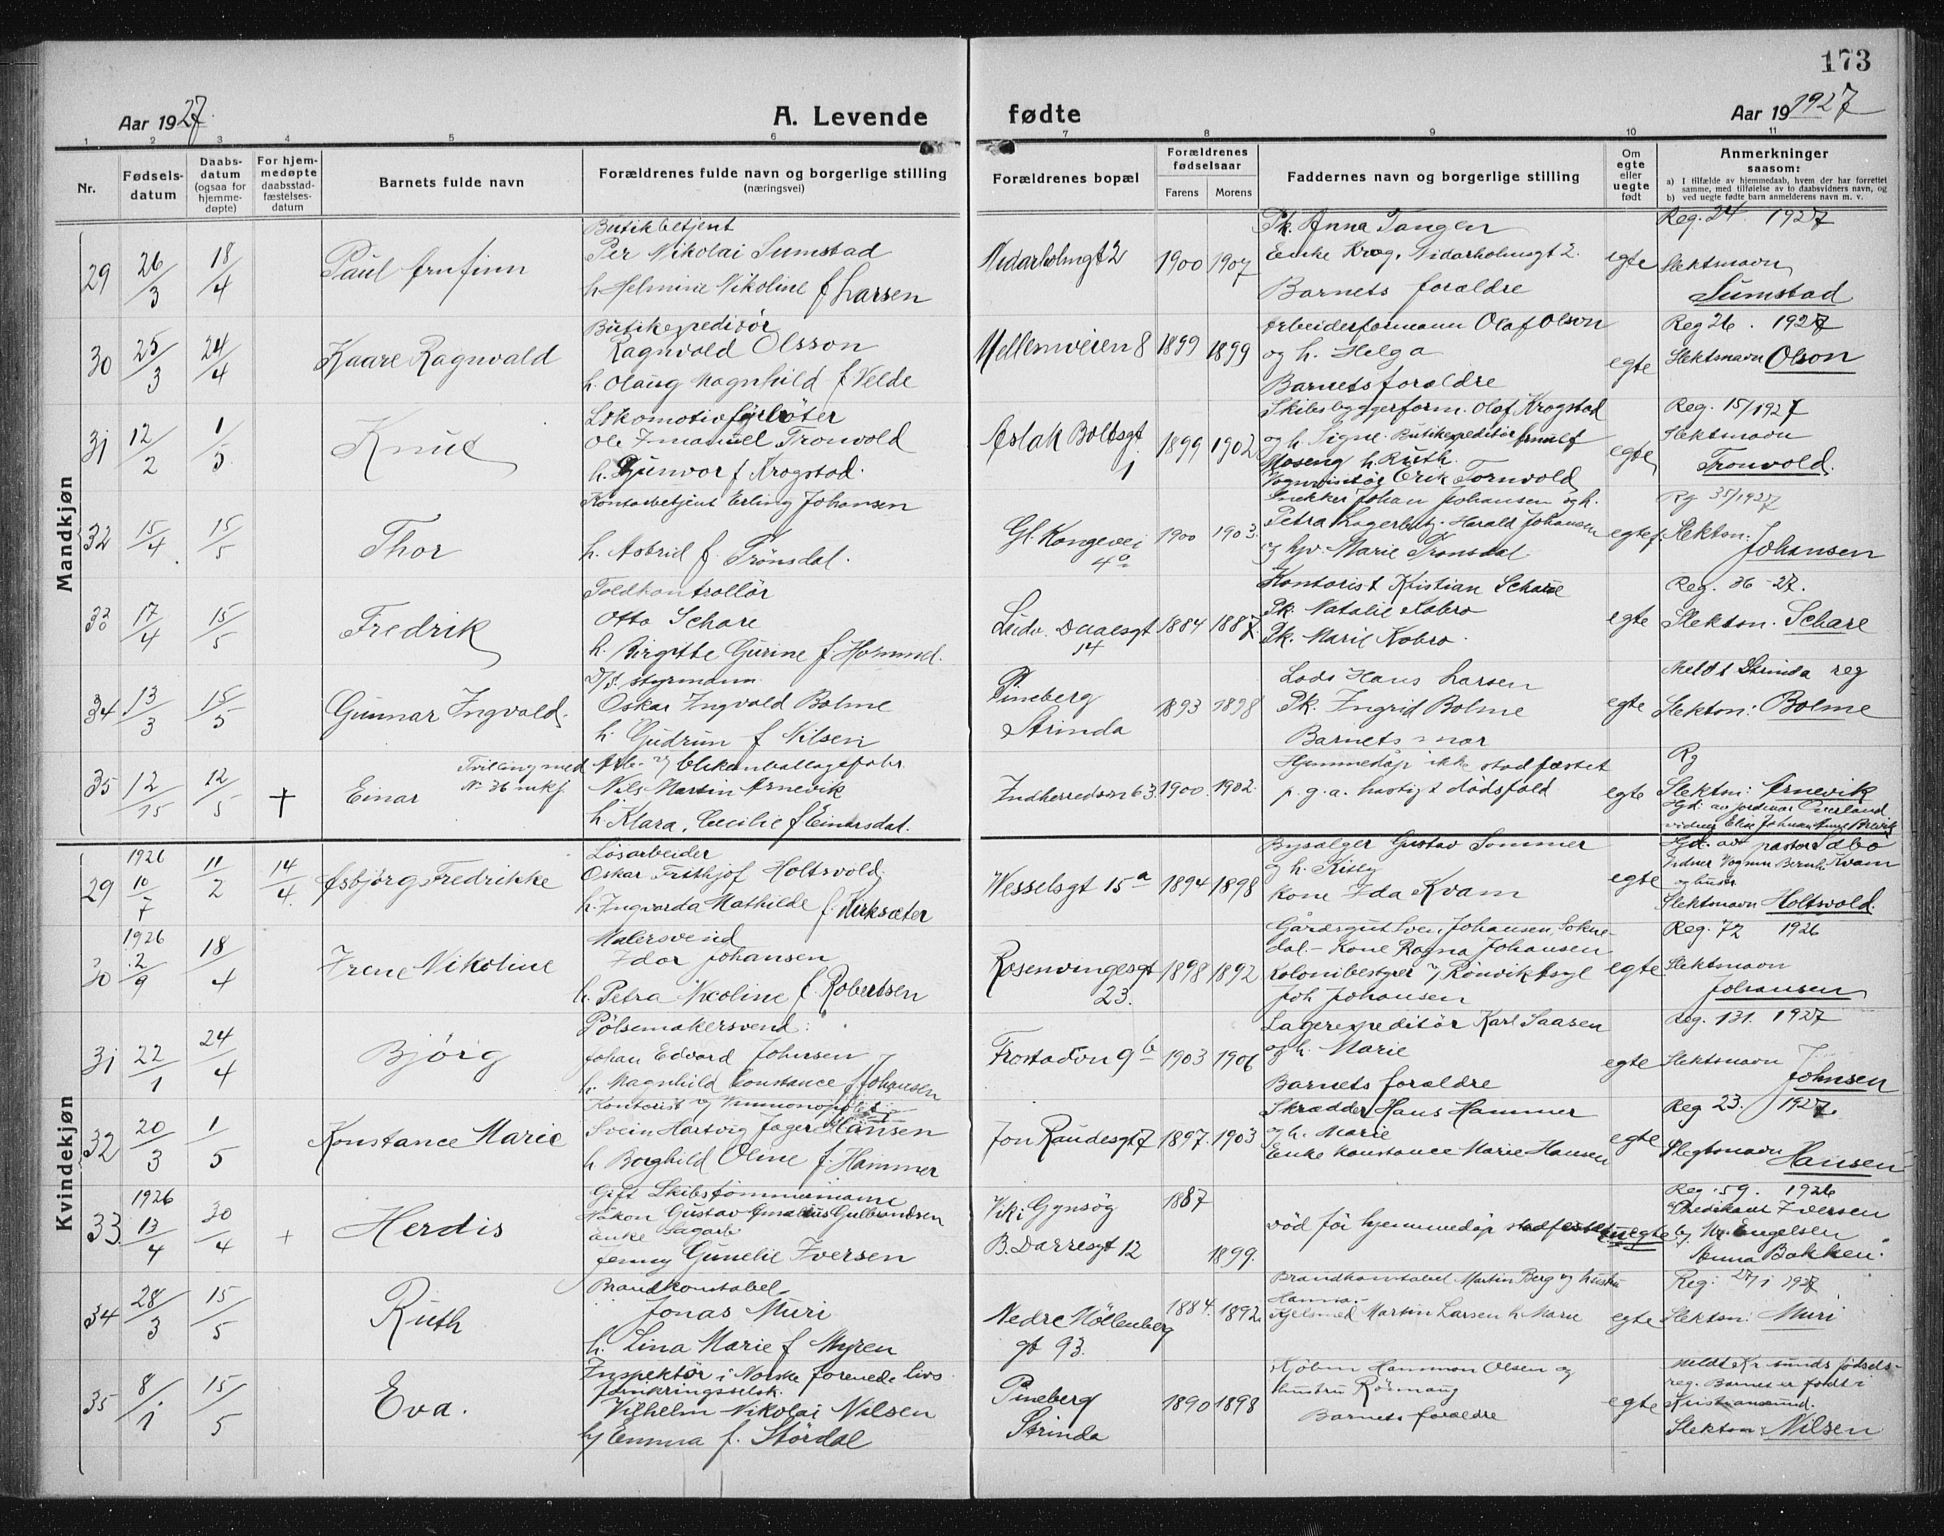 173
Aar 1927.
A. Levende
fødte
Aar 19 1927
1 2 3 4 5 6 7 8 9 10 11
Nr.
Fødsels-
datum
Daabs-
datum
(ogsaa for
hjemme-
døpte)
For hjem-
medøpte
daabsstad-
fæstelses-
datum
Barnets fulde navn
Forældrenes fulde navn og borgerlige stilling
(næringsvei)
Forældrenes bopæl
Forældrenes
fødselsaar
Farens Morens
Faddernes navn og borgerlige stilling
Om
egte
eller
uegte
født
Anmerkninger
saasom:
a) I tilfælde av hjemmedaab, hvem der har forrettet
samme, med tilføielse av to daabsvidners navn, og
b) ved uegte fødte barn anmelderens navn m. v.
Mandkjøn
29
26/3
18/4
Paul
Butikbetjent
Per Nikolai Sumstad
h. Helmine Nikoline f Larsen
Nidarholmgt 2
1900 1907
Pk. Anna Tangen
Enke Krog, Nidarholmsgt 2.
Barnets foraldre
egte
Reg. 24 1927
Slektsnavn
Sumstad
30
25/3
24/4
Kaare Ragnvald
Butikexpeditør
Ragnvold Olsson
h. Olaug Magnhild f Velde
Mellemveien 8
1899 1899
Arbeiderformann Olaf Olson
og h. Helga
Barnets foraldre
egte
Reg 26. 1927
Slektsnavn Olson
31
12/2
1/5
Knud
Ole Emanuel Tronvold
h. Gunvor f Krogstad.
Aslak Boltsgt
1
1899 1902
Skibsbyggerform. Olaf Krogstad
og h. Signe. Butikexpeditør
Moseng h. Ruth.
Erik Tornvold
egte
Reg. 15/1927
Slektsnavn
Tronvold.
32
15/4
15/5
Thor
Kontorbetjent Erling Johansen
h. Astrid f. Trönsdal.
Gl. Kongevei
4a
1900 1903.
Snekker Johan Johansen og h.
Petra Harald Johansen
og hv. Marie Tronsdal.
egte
Rg 35/1927
Slektsn:
Johansen
33
17/4
15/5
Fredrik
Toldkontrollör
Otto Schare
h. Birgitte Gurine f.
Ludv. Daaesgt
14
1884 1887.
Kontorist Kristian Schare
Pk. Natalie Kobro
Pk. Marie Kobro.
egte
Reg. 36-27.
Slektsn. Schare
34
13/3
15/5
Gunnar Ingvald.
D/S. styrmann
Oskar Ingvald Bolme
h. Gudrun f Nilsen
Pineberg
Strinda
1893 1898
Lods Hans Larsen
Pk. Ingrid Bolme
Barnets mor
egte
Meldt Strinda reg
Slektsn: Bolme
35
12/15
12/5
+
Einar
Tvilling med
No 36 mkj
Arb. v/ blikemballagefabr.
Nils Martin Arnevik
h. Klara, Cecilie f Einarsdal.
Indherredsv 63.
1900. 1902.
Hjemmedåp ikke stadfæstet
p.g.a. hastigt dödsfald
egte
Rg
Slektsn: Arnevik
Hjd: av jordmor Overland
Kvindekjøn
29
1926
10/7
11/2
14/4.
Asbjörg Fredrikke
Lösarbeider
Oskar Frithjof Holtsvold
h. Ingvarda Mathilde f. Kirksæter
Wesselsgt 15a
1894 1898
Bysælger Gustav Sommer
og h. Kitty
kone Ida Kvam
egte
Hjd. av pastor
Vidner Vognm Bernh. Kvam
og hustr
Slektsnavn Holtsvold.
30
1926
2/9
18/4
Irene Nikoline
Malersvend
Idar Johansen
h. Petra Nicoline f. Robertsen
Rosenvingesgt
23.
1898 1892
Gårdsgut Sven Johansen, Sokne-
dal. - Kone Ragna Johansen
Kolonibestyrer v/ Rönvik Asyl
Joh Johansen
egte
Reg. 72 1926
Slektsnavn
Johansen
31
22/1
24/4
Bjørg
Pølsemakersvend:
Johan Edvard Johnsen
h. Magnhild Constance f Johansen
Frostadvn 9b
1903 1906
Lagerexpeditör Karl Saasen
og h. Marie
Barnets foraldre
egte
Reg. 131. 1927
Slektsnavn
Johnsen
32
20/3
1/5
Konstance Marie
Kontorist v/ Vinmonopolet
Svein Hartvig Jager Hansen
h Borghild Oline f. Hammer
Jon Raudesgt 7
1897. 1903
Skrædder Hans Hammer
og h. Marie
Enke Konstance Marie Hansen
egte
Reg 23. 1927.
Slegtsnavn
Hansen
33.
1926
13/4
30/4
+
Herdis
Gift Skibstömmermann
Håkon Gustav Gulbrandsen
enke
Jenny Gunelie Iversen
B. Darresgt 12
1887
1899.
död för hjemmedåp stadfestet
uegte
Reg. 59. 1926
a) Predikant Iversen
b) Engelsen
Anna Bakken.
34
28/3
15/5
Ruth
Brandkonstabel
Jonas Muri
h. Lina Marie f Myren
Nedre Möllenberg
gt 93.
1884. 1892.
Brandkonstabel Martin Berg og hustru
Hanna.
Martin Larsen h. Marie
egte
Reg: 27/1 1927
Slektsn: Muri
35
8/1
15/5
Eva.
Inspektør i Norske forenede livs
forsikringsselsk.
Vilhelm Nikolai Nilsen
h/ Emma f. Stördal
Pineberg
Strinda
1890 1898
Hammon Olsen og
hustru
Barnets foraldre
egte
Meldt Kr.sunds fødsels-
reg. Barnet er født i
Kristiansund.
Slektsn: Nilsen